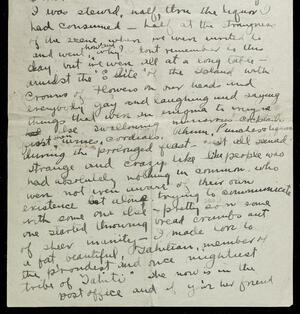 I was stewed, well from the liquor I
had consumed — but at the
of the scene when we were invited to
and went how and why I dont remember to this
day but we were all at a long table —
amidst the "élite" of the Island with
Crowns of flowers on our heads and
everybody gay and laughing and saying
things that were an enigma to
else swallowing numerous
wine, cordials, Punches liqueurs
during the prolonged feast — it all seemed
strange and crazy like the people who
had absolutely nothing in common. who
were not even aware of their own
existence let alone trying to communicate
with some one else — pretty soon some
one started throwing bread crumbs out
of sheer inanity — I made love to
a fat beautiful, Tahitian, member of
the proudest and once mightiest
tribe of "Tahiti" She now is in the
post office and if your her friend